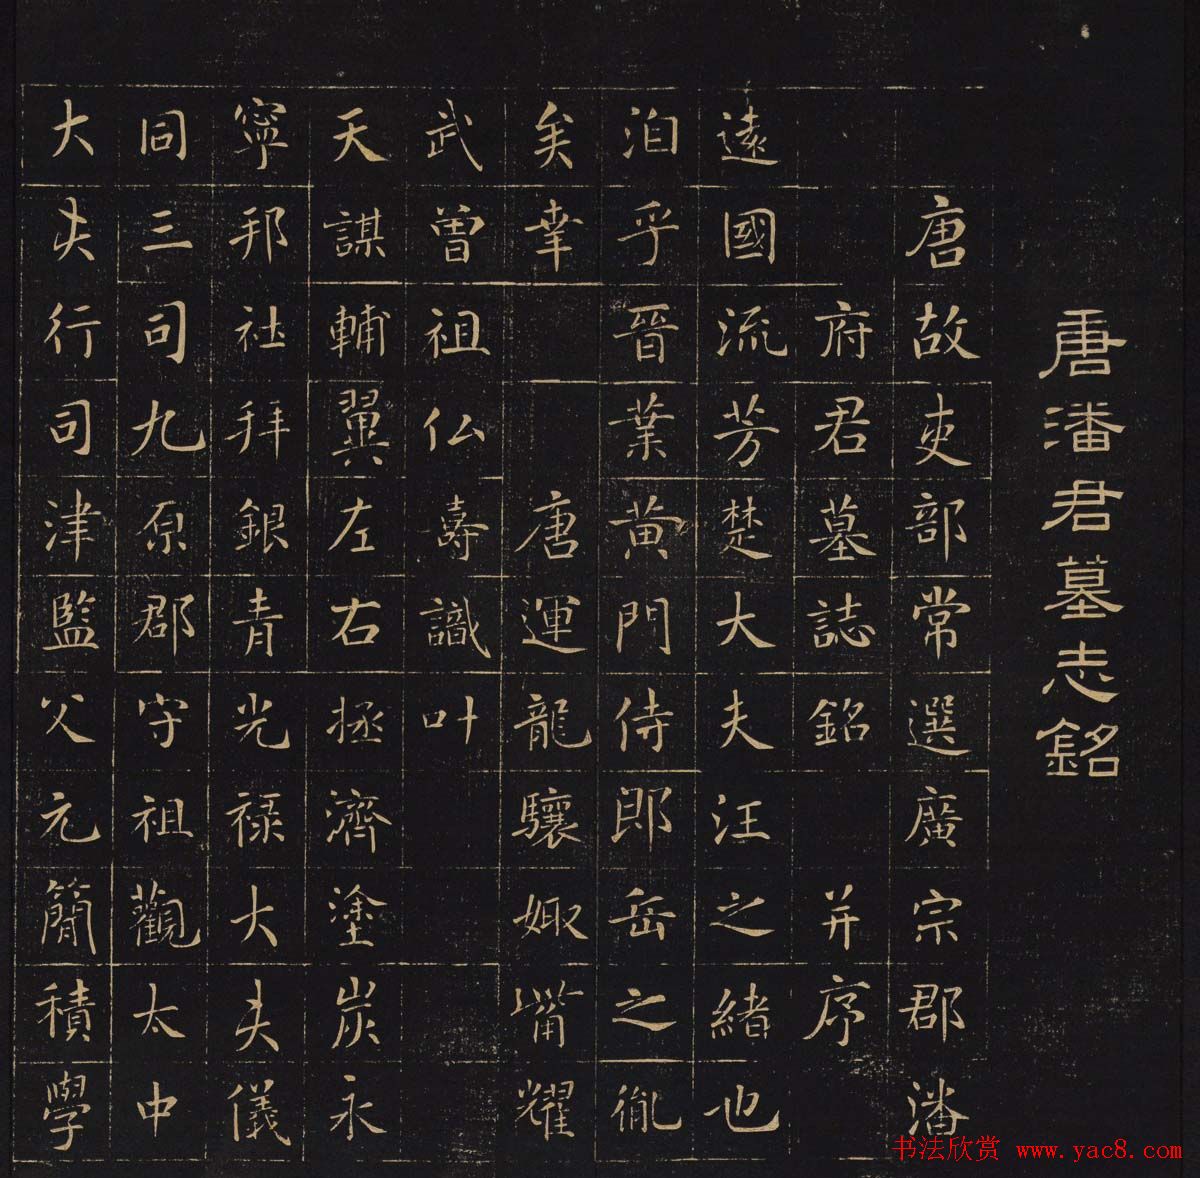 唐潘君墓志銘
唐故吏部常選廣宗郡潘
府君墓誌銘 并序
遠國流芳楚大夫汪之緒也
洎乎晉葉黄門侍郎岳之胤
矣幸 唐運龍驤娵觜耀
武曾祖仏壽識叶
天謀輔翼左右拯濟塗炭永
寧邦社拜銀青光禄大夫儀
同三司九原郡守祖觀太中
大夫行司津監父元簡積學
书法欣赏 www.yac8.com